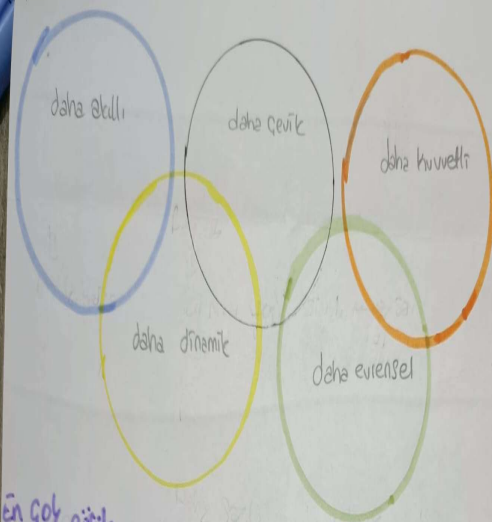 daha akıllı
daha çevik
daha kuvvetli
daha dinamik
daha evrensel
En çok